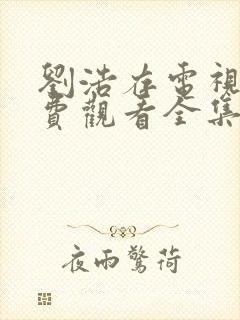 劉浩存電視
費觀看全集
夜雨驚荷